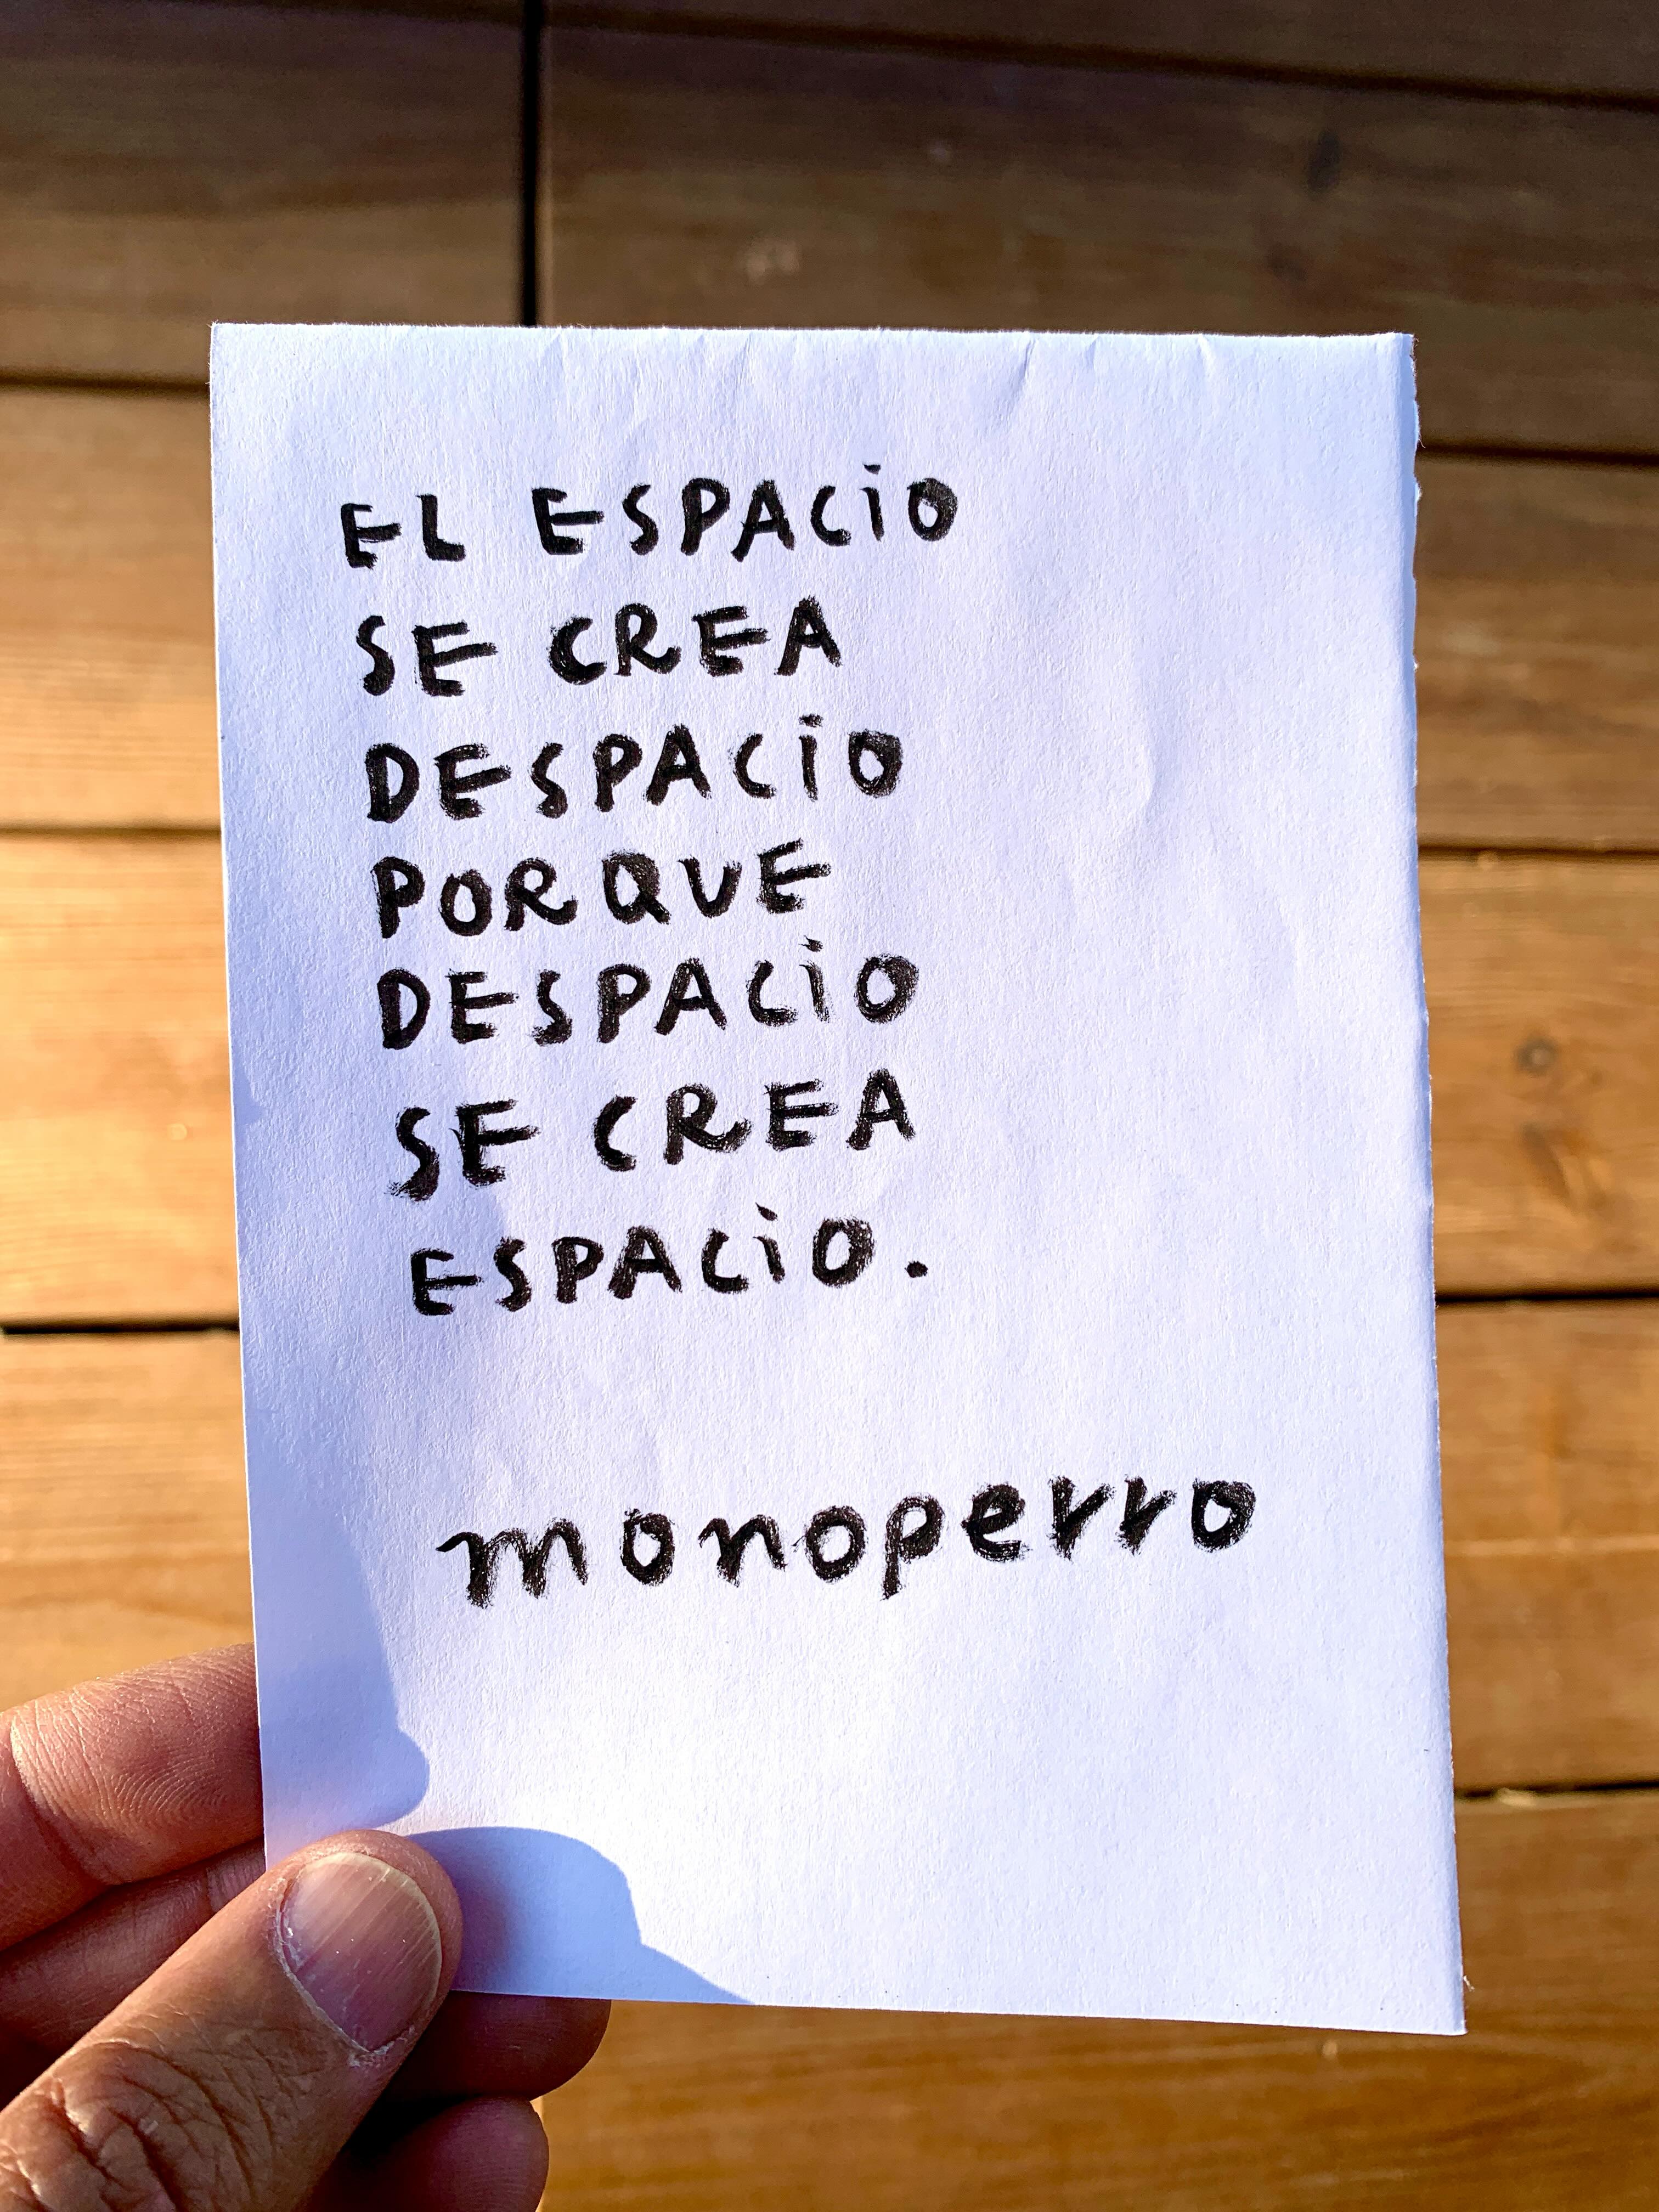 EL ESPACiO
SE CREA
DESPACiO
PORQUE
DESPACiO
SE CREA
ESPACiO.
monoperro